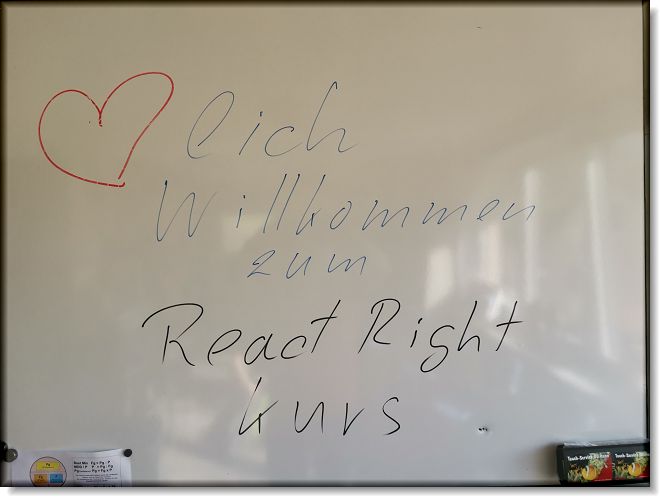 lich
Willkommen
zum
React Right
kurs